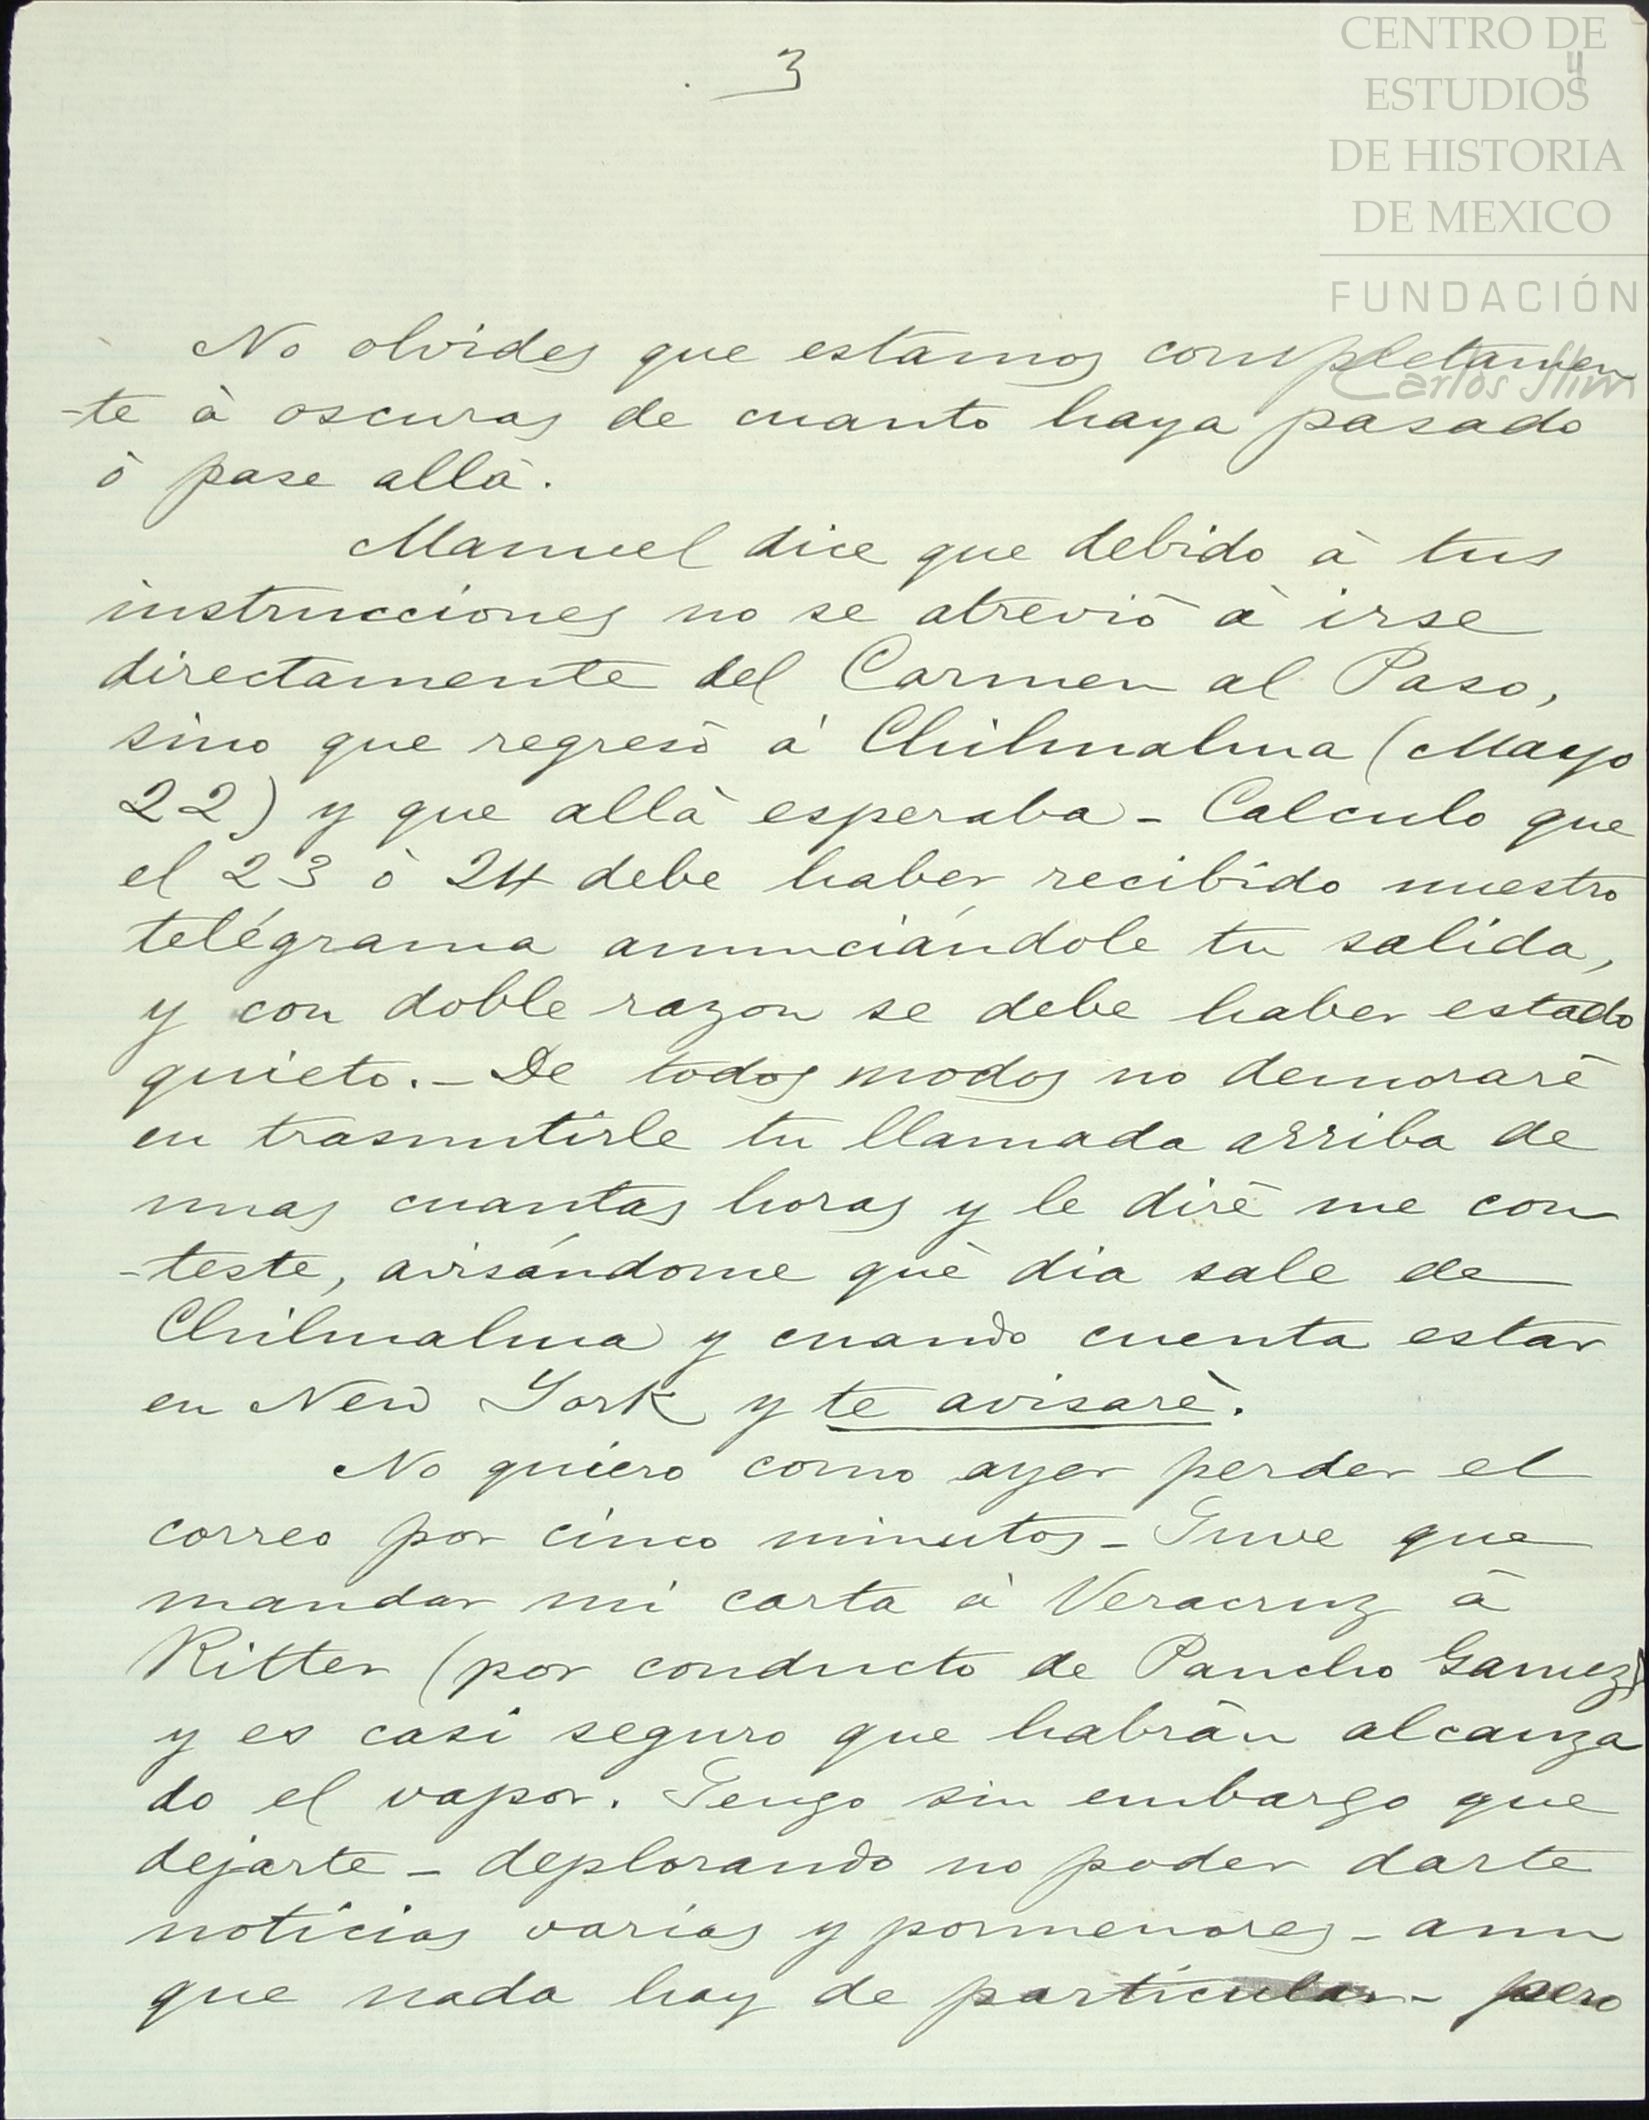 3
4
CENTRO DE
ESTUDIOS
DE HISTORIA
DE MEXICO
FUNDACIÓN
Carlos Slim
No olvides que estamos completamen
-te à oscuras de cuanto haya pasado
ò pase allà.
Manuel dice que debido à tus
instrucciones no se atreviò à irse
directamente del Carmen al Paso,
sino que regresò á Chilmalma (Mayo
22) y que allà esperaba - Calculo que
el 23 ò 24 debe haber recibido nuestro
telégrama anunciándole tu salida,
y con doble razon se debe haber estado
quieto. - De todos modos no demoraré
en trasmitirle tu llamada arriba de
unas cuantas horas y le diré me con
-teste, avisándome què dia sale de
Chilmalma y cuando cuenta estar
en New York y te avisaré.
No quiero como ayer perder el
correo por cinco minutos - Tuve que
mandar mi carta à Veracruz à
Ritter (por conducto de Pancho Gamez)
y es casi seguro que habràn alcanza
do el vapor. Tengo sin embargo que
dejarte - deplorando no poder darte
noticias varias y pormenores - aun
que nada hay de particular - pero